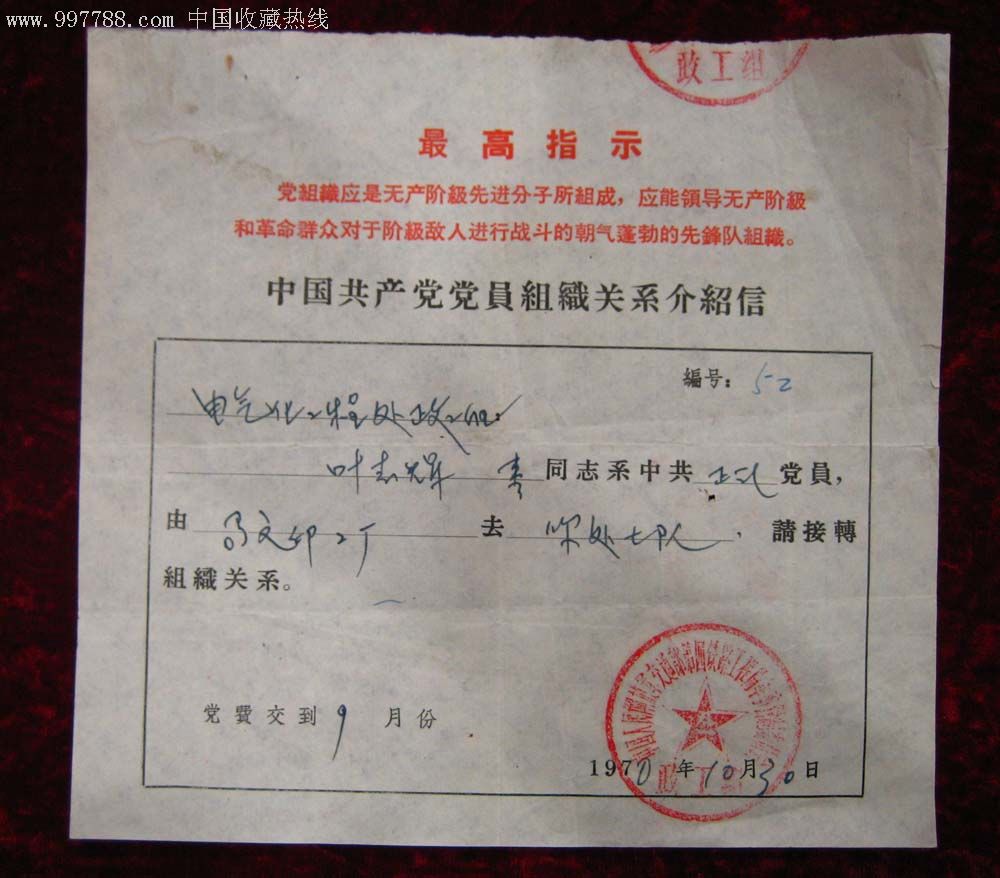 www.997788.com 中国收藏热线
政工组
最高指示
党組織应是无产阶級先进分子所組成，应能領导无产阶級
和革命群众对于阶級敌人进行战斗的朝气蓬勃的先鋒队組織。
中国共产党党員組織关系介紹信
編号：52
电气化工程处政工组：
叶志 同志系中共正式党員，
由 工厂去 处七队．請接轉
組織关系。
党費交到9月份
1970年10月30日